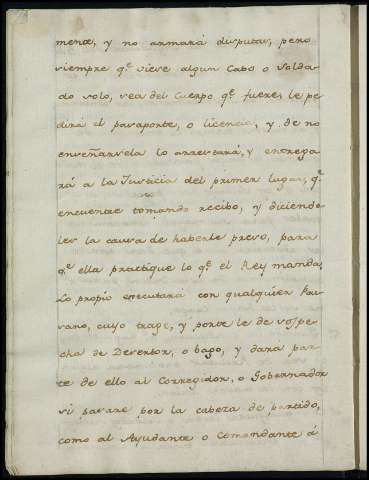 mente, y no armará disputas, pero
siempre qᵉ viese algun Cabo o Solda
do solo, sea del Cuerpo qᵉ fuere, le pe
dirá el pasaporte, o licencia, y de no
enseñarsela lo arrestará, y entrega
rá a la Justicia del primer lugar, qᵉ
encuentre tomando recibo, y diciendo
les la causa de haberle preso, para
qᵉ ella practique lo qᵉ el Rey manda,
Lo propio executará con qualquier Pai
sano, cuyo trage, y porte le de sospe
cha de Desertor, o bago, y dara par
te de ello al Corregidor, o Gobernador
si pasare por la cabeza de partido,
como al Ayudante o Comandante á